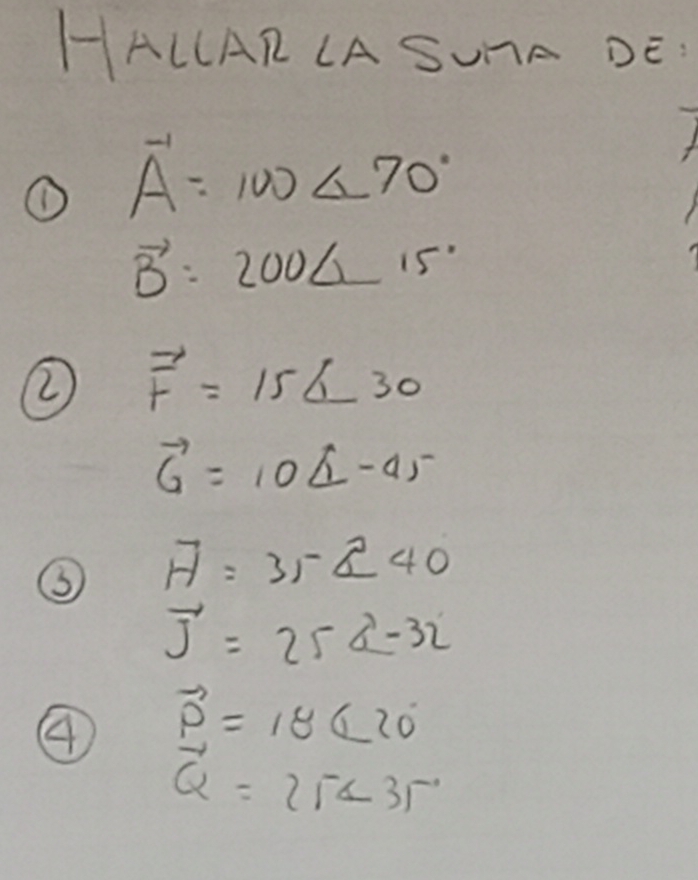 HALLAR LA SUMA DE:
① A⃗ = 100 ∡ 70°
B⃗ = 200 ∡ 15°
② F⃗ = 15 ∡ 30
G⃗ = 10 ∡ -45
③ H⃗ = 35 ∡ 40
J⃗ = 25 ∡ -32
④ P⃗ = 18 ∡ 20°
Q⃗ = 25 ∡ 35°